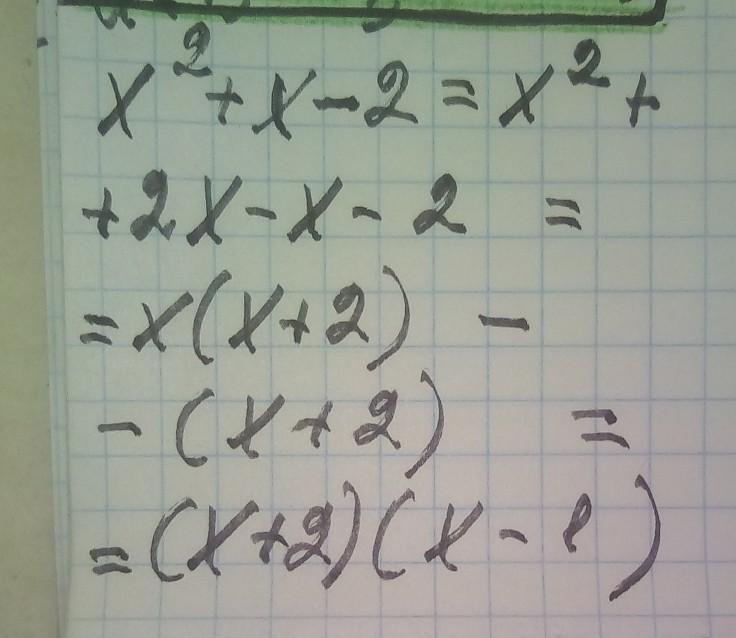 x² + x - 2 = x² +
+ 2x - x - 2 =
= x(x + 2) -
- (x + 2) =
= (x + 2)(x - 1)